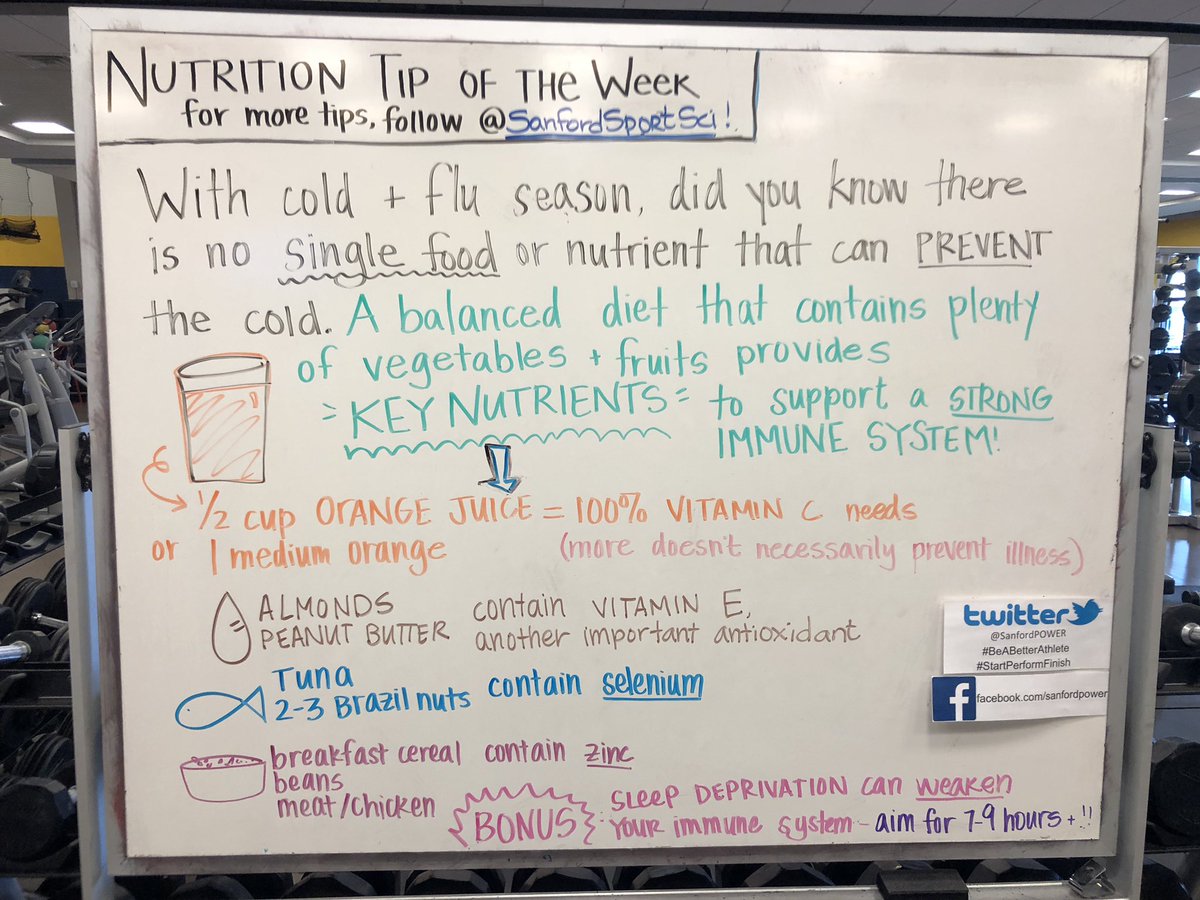 NUTRITION TIP OF THE WEEK
for more tips, follow @SanfordSportSci!
With cold + flu season, did you know there
is no single food or nutrient that can PREVENT
the cold. A balanced diet that contains plenty
of vegetables + fruits provides
= KEY NUTRIENTS = to support a STRONG
IMMUNE SYSTEM!
1/2 cup ORANGE JUICE = 100% VITAMIN C needs
or 1 medium orange (more doesn't necessarily prevent illness)
ALMONDS contain VITAMIN E,
PEANUT BUTTER another important antioxidant
Tuna
2-3 Brazil nuts contain selenium
breakfast cereal contain zinc
beans
meat/chicken
BONUS: SLEEP DEPRIVATION can weaken
Your immune system - aim for 7-9 hours + !!
twitter
@SanfordPOWER
#BeABetterAthlete
#StartPerformFinish
f facebook.com/sanfordpower